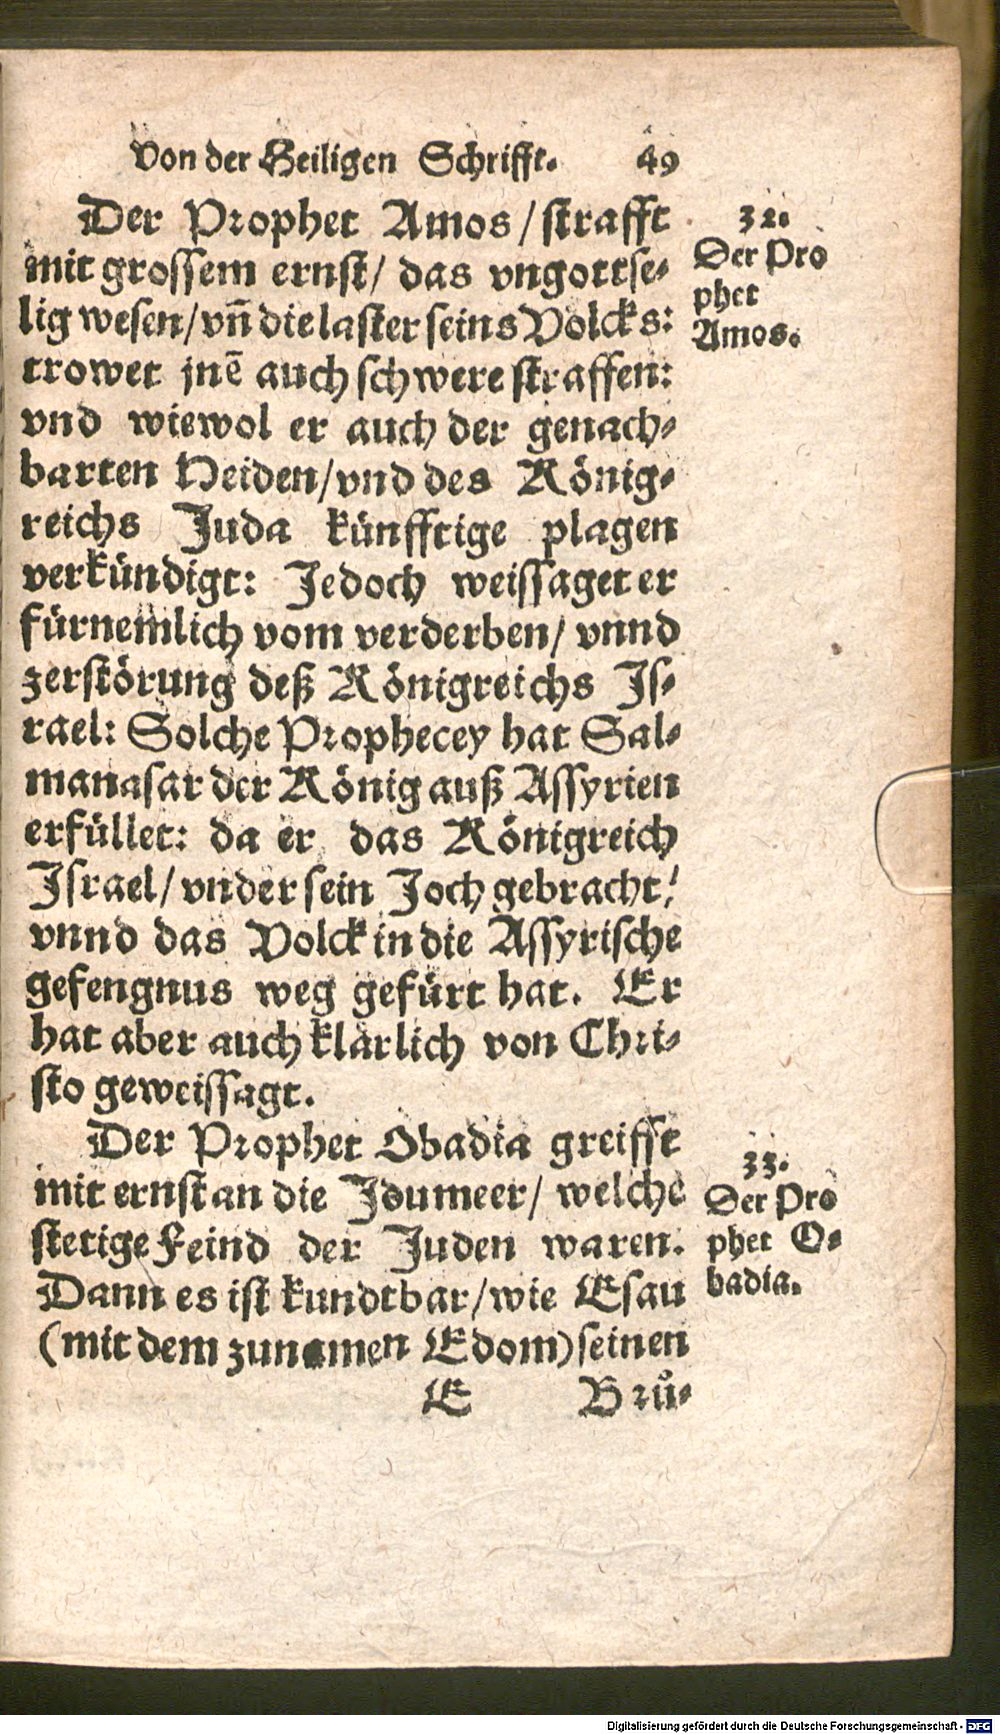 Von der Heiligen Schrifft. 49
Der Prophet Amos / strafft
mit grossem ernst / das vngottse-
lig wesen / vñ die laster seins Volcks:
trowet jnē auch schwere straffen:
vnd wiewol er auch der genach-
barten Heiden / vnd des König-
reichs Juda künfftige plagen
verkündigt: Jedoch weissaget er
fürnemlich vom verderben / vnnd
zerstörung deß Königreichs Is-
rael: Solche Prophecey hat Sal-
manasar der König auß Assyrien
erfüllet: da er das Königreich
Israel / vnder sein Joch gebracht /
vnnd das Volck in die Assyrische
gefengnus weg gefürt hat. Er
hat aber auch klärlich von Chri-
sto geweissagt.
Der Prophet Obadia greifft
mit ernst an die Idumeer / welche
stetige Feind der Juden waren.
Dann es ist kundtbar / wie Esau
(mit dem zunamen Edom) seinen
E Brů-
32.
Der Pro
phet
Amos.
33.
Der Pro
phet O-
badia.
Digitalisierung gefördert durch die Deutsche Forschungsgemeinschaft - DFG